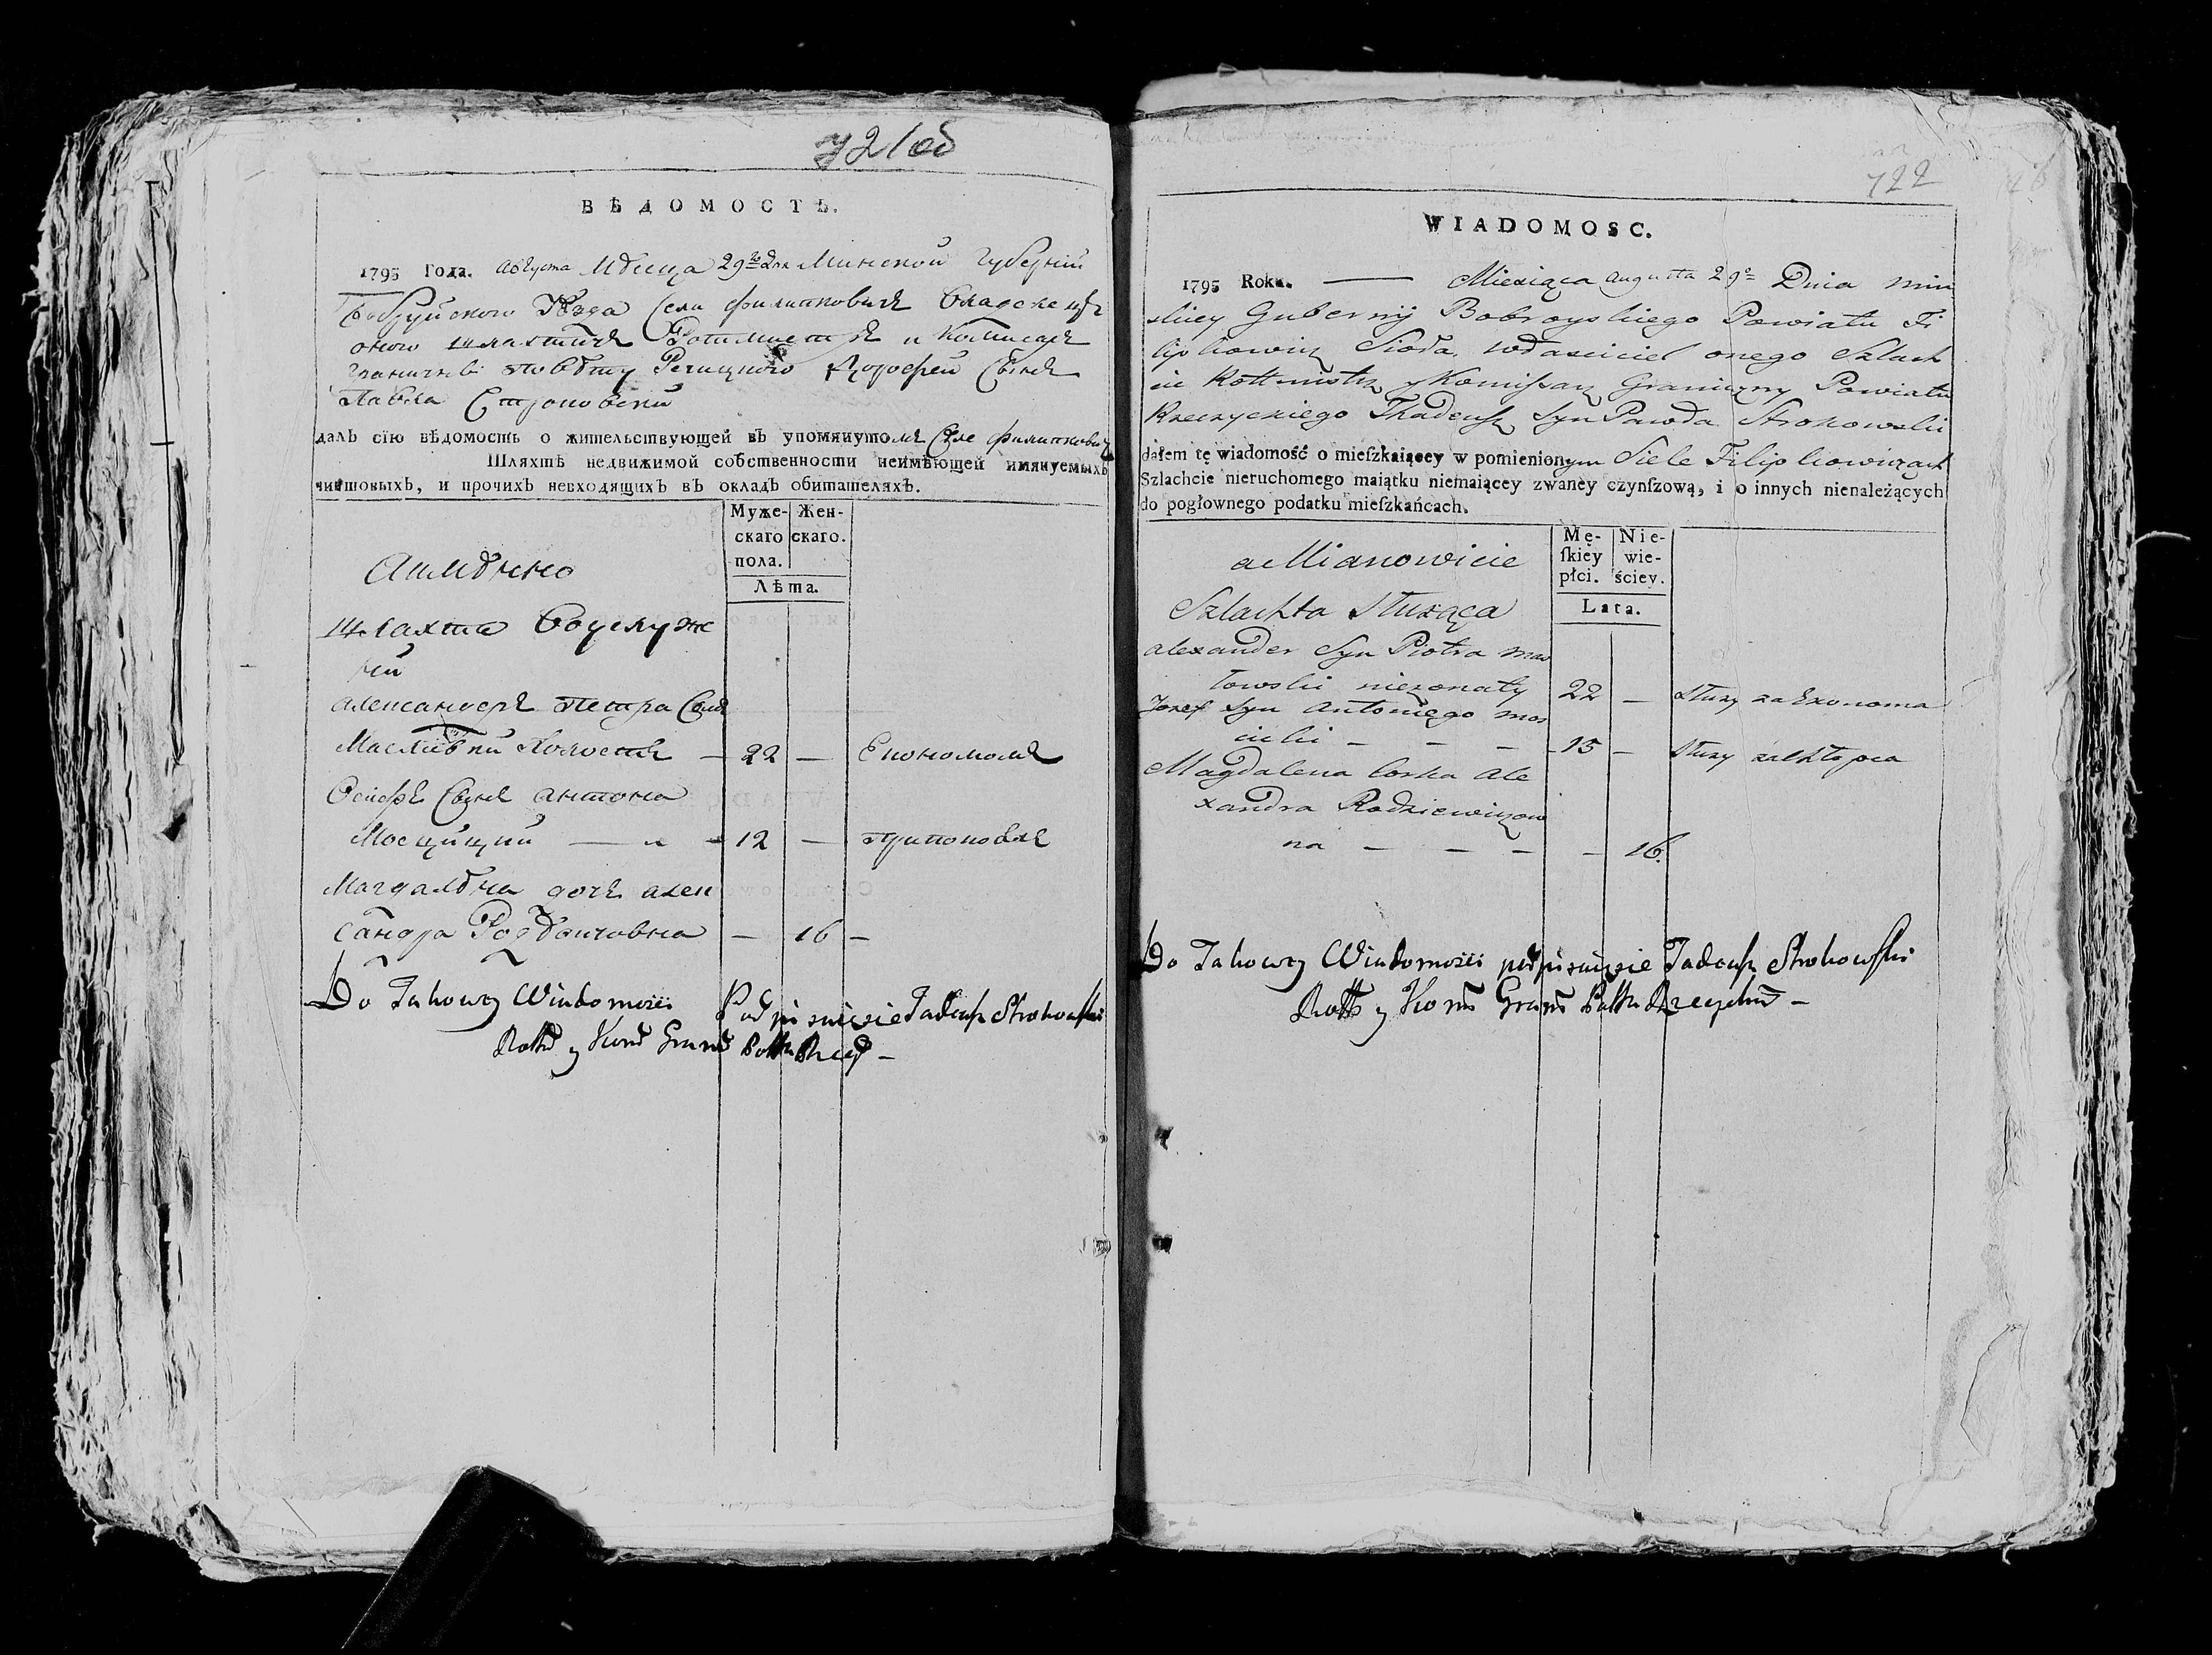 721 об
ВѢДОМОСТЬ.
1795 Года. Августа Мѣсяца 29го Дня Минской Губернїи
Бобруйского Уѣзда Села Филипковичъ
оного шляхтичъ Ротмистръ и Комисаръ
повѣту Речицкого Сынъ
Павла Строковскїй
далъ сїю вѣдомость о жительствующей въ упомянутомъ Селе Филипкович
Шляхтѣ недвижимой собственности неимѣющей имянуемыхъ
чиншовыхъ, и прочихъ невходящихъ въ окладъ обитателяхъ.
Муже- Жен-
скаго скаго.
пола.
Лѣта.
Аимѣнно
Шляхта Воуслуже
нїй
Александеръ Петра Сынъ
Холостъ — 22 — Економомъ
Осифъ Сынъ Антона
Мосцицкий — 12 —
Магдалѣна дочь Алек
сандра — 16 —
Do Takowey Wiadomości Podpisuię sie Tadeusz Strokowski
Rottm y Kom Gran Pottu Rzecz —
722
WIADOMOSC.
1795 Roku. — Miesiąca Augusta 29º Dnia Min
skiey Gubernij Bobroyskiego Powiatu Fi
lipkowicz Sioła, właściciel onego Szlach
cic Rottmistrz y Komissarz Graniczny Powiatu
Rzeczyckiego Thadeusz Syn Pawła Strokowski
dałem tę wiadomość o mieſzkaiącey w pomienionym Siele Filipkowiczach
Szlachcie nieruchomego maiątku niemaiącey zwaney czynſzową, i o innych nienależących
do pogłownego podatku mieſzkańcach.
Mę- Nie-
ſkiéy wie-
płci. ściey.
Lata.
a Mianowicie
Szlachta Służąca
Alexander Syn Piotra Mas
łowski nieżonaty 22 — służy za Ekonoma
Jozef Syn Antoniego Mos
cicki — — — 15 — służy za Chłopca
Magdalena Corka Ale
xandra Rodziewiczow
na — — — — 16.
Do Takowey Wiadomości podpisuię sie Tadeusz Strokowski
Rottm y Kom Gran Pottu Rzeczyckie —